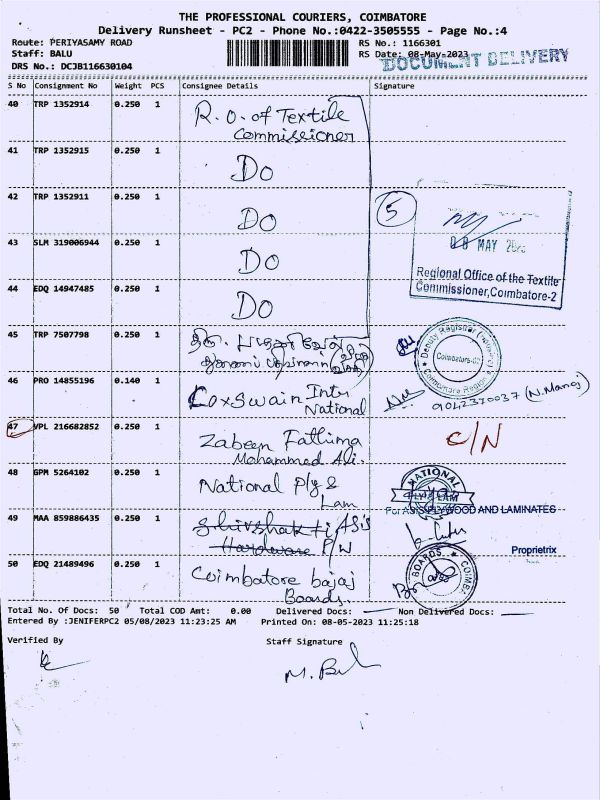 THE PROFESSIONAL COURIERS, COIMBATORE
Delivery Runsheet - PC2 - Phone No.:0422-3505555 - Page No.:4
Route: PERIYASAMY ROAD RS No.: 1166301
Staff: BALU RS Date: 08-May-2023
DOCUMENT DELIVERY
DRS No.: DCJB116630104
S No Consignment No Weight PCS Consignee Details Signature
40 TRP 1352914 0.250 1 R.O. of Textile
Commissioner
41 TRP 1352915 0.250 1 Do
42 TRP 1352911 0.250 1 Do
5
08 MAY 2023
43 SLM 319006944 0.250 1 Do
Regional Office of the Textile
Commissioner, Coimbatore-2
44 EDQ 14947485 0.250 1 Do
45 TRP 7507798 0.250 1 திரு.
Deputy Registrar
Coimbatore-02
Coimbatore Region
46 PRO 14855196 0.140 1 Coxswain Inter
National
9042370037 (N.Manoj)
47 VPL 216682852 0.250 1 Zabeen Fathima C/N
Mohammed Ali.
48 GPM 5264102 0.250 1 National Ply &
Lam
NATIONAL
PLY & LAM
For ASIS PLYWOOD AND LAMINATES
49 MAA 859886435 0.250 1 Shivshakti Asis
Hardware P/W
Proprietrix
50 EDQ 21489496 0.250 1 Coimbatore bajaj
Boards
BOARDS COIMB
Total No. Of Docs: 50 Total COD Amt: 0.00 Delivered Docs: Non Delivered Docs:
Entered By :JENIFERPC2 05/08/2023 11:23:25 AM Printed On: 08-05-2023 11:25:18
Verified By Staff Signature
M. Bal